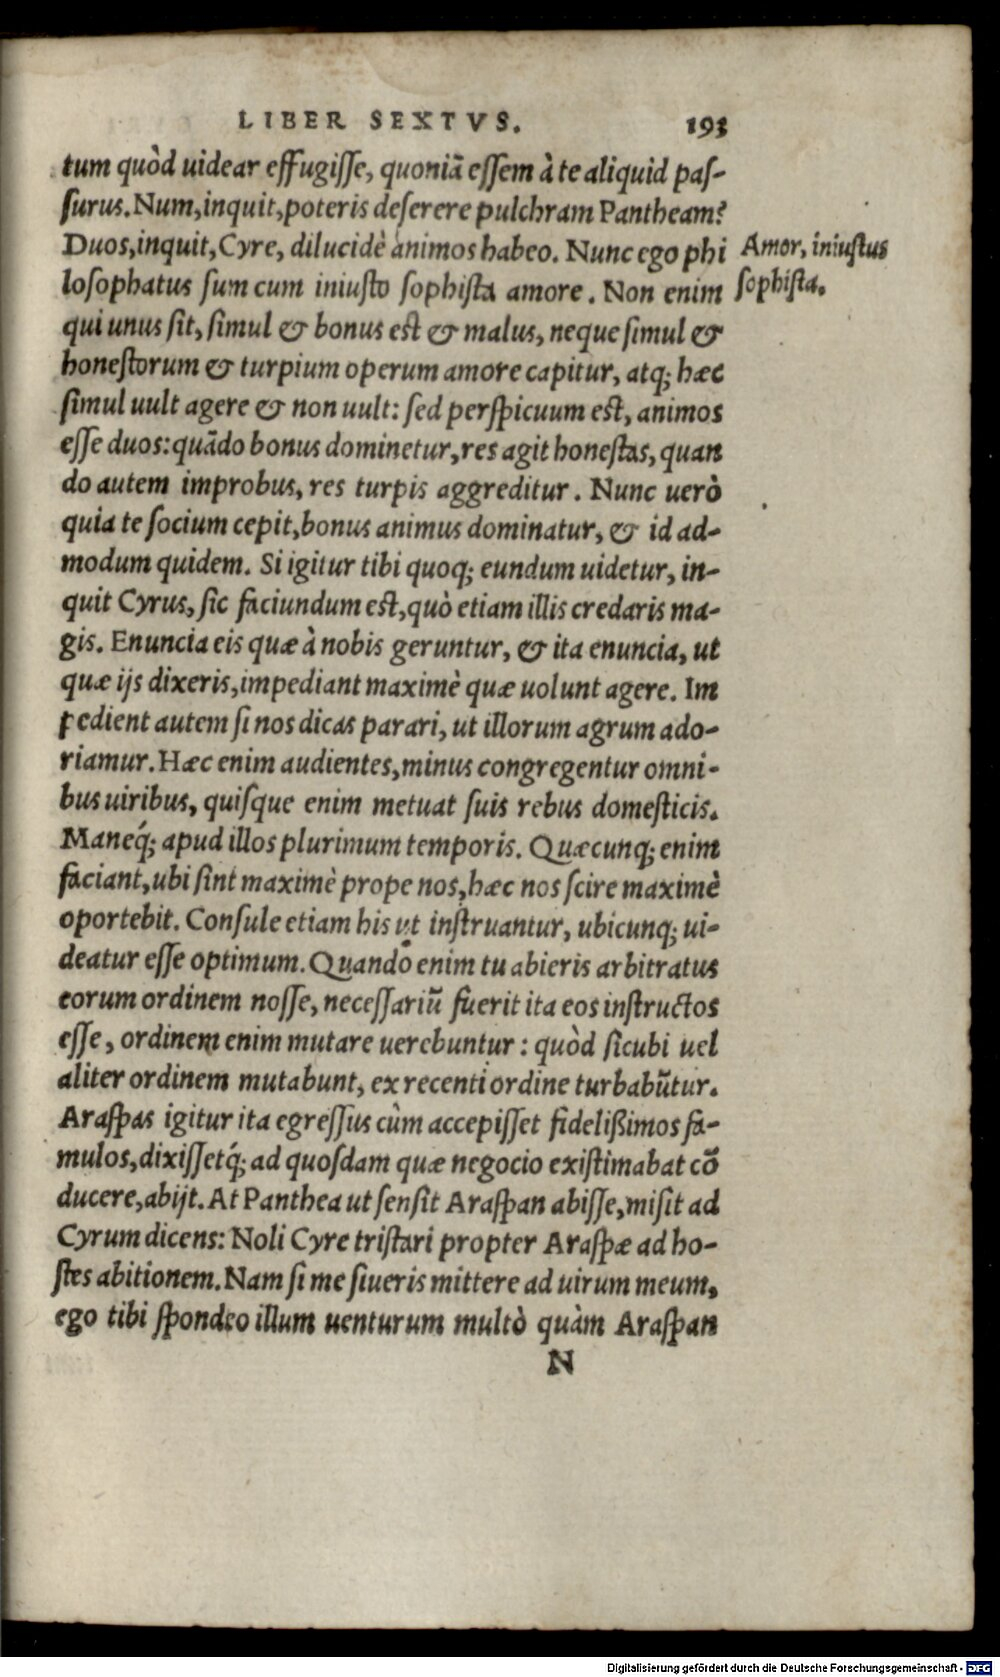 LIBER SEXTVS. 193
tum quòd uidear effugiſſe, quoniã eſſem à te aliquid paſ-
ſurus. Num, inquit, poteris deſerere pulchram Pantheam?
Duos, inquit, Cyre, dilucidè animos habeo. Nunc ego phi
loſophatus ſum cum iniuſto ſophiſta amore. Non enim
qui unus ſit, ſimul & bonus eſt & malus, neque ſimul &
honeſtorum & turpium operum amore capitur, atq; hæc
ſimul uult agere & non uult: ſed perſpicuum eſt, animos
eſſe duos: quãdo bonus dominetur, res agit honeſtas, quan
do autem improbus, res turpis aggreditur. Nunc uerò
quia te ſocium cepit, bonus animus dominatur, & id ad-
modum quidem. Si igitur tibi quoq; eundum uidetur, in-
quit Cyrus, ſic faciundum eſt, quò etiam illis credaris ma-
gis. Enuncia eis quæ à nobis geruntur, & ita enuncia, ut
quæ ijs dixeris, impediant maximè quæ uolunt agere. Im
pedient autem ſi nos dicas parari, ut illorum agrum ado-
riamur. Hæc enim audientes, minus congregentur omni-
bus uiribus, quiſque enim metuat ſuis rebus domeſticis.
Maneq́; apud illos plurimum temporis. Quæcunq; enim
faciant, ubi ſint maximè prope nos, hæc nos ſcire maximè
oportebit. Conſule etiam his ut inſtruantur, ubicunq; ui-
deatur eſſe optimum. Quando enim tu abieris arbitratus
eorum ordinem noſſe, neceſſariũ fuerit ita eos inſtructos
eſſe, ordinem enim mutare uerebuntur: quòd ſicubi uel
aliter ordinem mutabunt, ex recenti ordine turbabũtur.
Araſpas igitur ita egreſſus cùm accepiſſet fidelißimos fa-
mulos, dixiſſetq́; ad quoſdam quæ negocio exiſtimabat cõ
ducere, abijt. At Panthea ut ſenſit Araſpan abiſſe, miſit ad
Cyrum dicens: Noli Cyre triſtari propter Araſpæ ad ho-
ſtes abitionem. Nam ſi me ſiueris mittere ad uirum meum,
ego tibi ſpondeo illum uenturum multò quàm Araſpan
N
Amor, iniuſtus
ſophiſta.
Digitalisierung gefördert durch die Deutsche Forschungsgemeinschaft - DFG